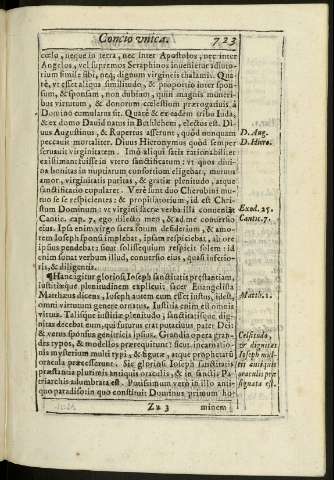 Concio vnica. 723
cœlo, neque in terra, nec inter Apostolos, nec inter
Angelos, vel supremos Seraphinos inuenietur adiuto-
rium simile sibi, neq; dignum virgineis thalami. Qua-
rè, vt esset aliqua similitudo, & proportio inter spon-
sum, & sponsam, non dubium, quin magnis muneri-
bus virtutum, & donorum cœlestium prærogatiuis à
Domino cumulatus sit. Quarè & ex eadem tribu Iuda,
& ex domo Dauid natos in Bethlehem, electos est. Di-
uus Augustinus, & Rupertus asserunt, quòd nunquam
peccauit mortaliter. Diuus Hieronymus quòd semper
seruauit virginitatem. Imò aliqui satis rationabiliter
existimant fuisse in vtero sanctificatum: vt quos diui-
na bonitas in nuptiarum consortium eligebat, mutuus
amor, virginitatis puritas, & gratiæ plenitudo, atque
sanctificatio copularet. Verè sunt duo Cherubini mu-
tuo se se respicientes: & propitiatorium, id est Chri-
stum Dominum: vt virgini sacræ verba illa conueniāt
Cantic. cap. 7. ego dilecto meo, & ad me conuersio
eius. Ipsa enim virgo sacra solum desiderium, & amo-
rem Ioseph sponsi implebat, ipsam respiciebat, ab ore
ipsius pendebat: solisequium respicit solem: id
enim sonat verbum illud, conuersio eius, quasi inspectio
eius, & diligentis.
¶ Hanc igitur gloriosi Ioseph sanctitatis præstantiam,
iustitiæque plenitudinem explicuit sacer Euangelista
Matthæus dicens, Ioseph autem cum esset iustus, idest,
omni virtutum genere ornatus. Iustitia enim est omnis
virtus. Talisque iustitiæ plenitudo, sanctitatisque dig-
nitas decebat eum, qui futurus erat putatiuus pater Dei:
& verus sponsus genitricis ipsius. Grandia opera gran-
des typos, & modellos prærequirunt: sicut incarnatio-
nis mysterium multi typi, & figuræ, atque prophetarū
oracula præcessere. Sic gloriosi Ioseph sanctitatis
præstantia plurimis antiquis oraculis, & in sanctis Pa-
triarchis adumbrata est. Potissimum verò in illo anti-
quo paradiso in quo constituit Dominus primum ho-
Zz 3 minem
D. Aug.
D. Hiero.
Exod. 25.
Cantic. 7.
Matth. 1.
Celsitudo,
& dignitas
Ioseph mul-
tis antiquis
oraculis præ
signata est.